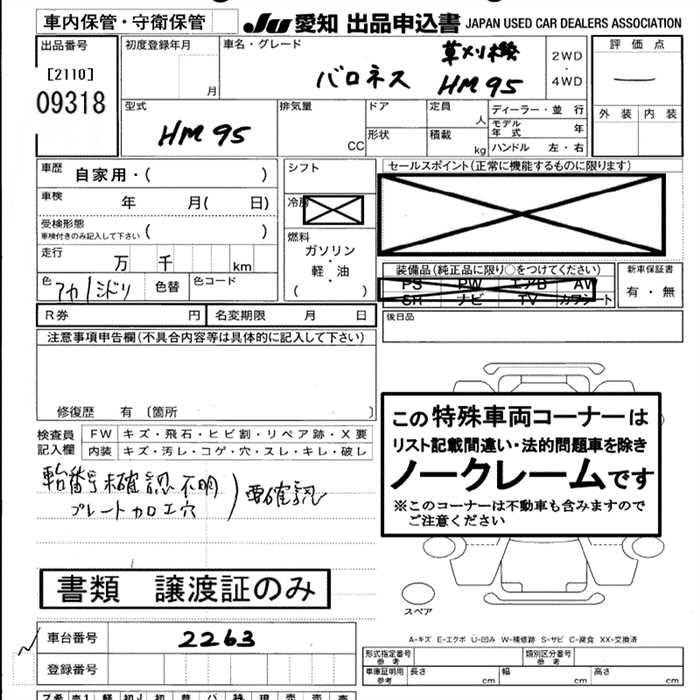 車内保管・守衛保管
JU 愛知 出品申込書 JAPAN USED CAR DEALERS ASSOCIATION
出品番号
[2110]
09318
初度登録年月
月
車名・グレード
草刈機
バロネス HM95
2WD
・
4WD
評価点
外装 内装
型式
HM95
排気量
CC
ドア
形状
定員
人
積載
kg
ディーラー・並行
モデル年式 年
ハンドル 左・右
車歴 自家用・( )
車検 年 月( 日)
受検形態
車検付きのみ記入して下さい ( )
走行 万 千 km
色 アカ/ミドリ 色替 色コード
R券 円 名変期限 月 日
シフト
冷房
燃料
ガソリン
・
軽・油
( )
セールスポイント(正常に機能するものに限ります)
装備品(純正品に限り○をつけてください)
PS PW エアB AW
SR ナビ TV カワシート
新車保証書
有・無
後日品
注意事項申告欄(不具合内容等は具体的に記入して下さい)
修復歴 有 〔箇所 〕
検査員
記入欄
FW キズ・飛石・ヒビ割・リペア跡・X要
内装 キズ・汚レ・コゲ・穴・スレ・キレ・破レ
プレート加工穴
要確認
この特殊車両コーナーは
リスト記載間違い・法的問題車を除き
ノークレームです
※このコーナーは不動車も含みますので
ご注意ください
スペア
書類 譲渡証のみ
車台番号 2263
登録番号
A-キズ E-エクボ U-凹み W-補修跡 S-サビ C-腐食 XX-交換済
形式指定番号
参考
類別区分番号
参考
車庫証明用
参考
長さ cm 幅 cm 高さ cm